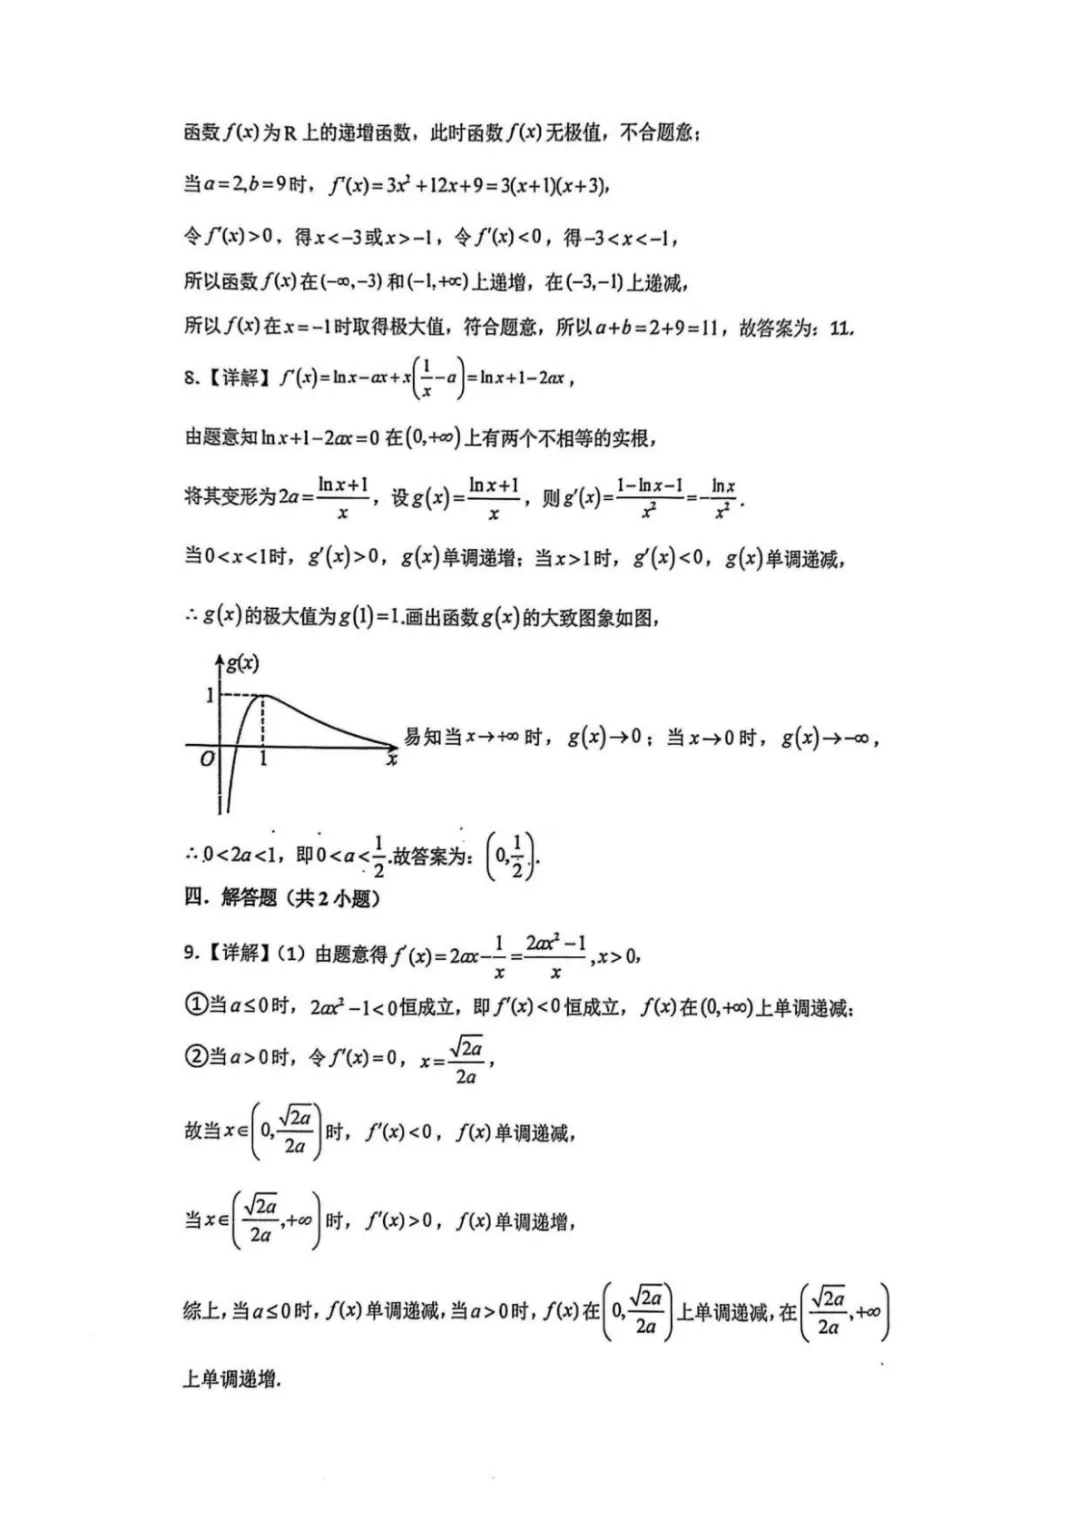 函数f(x)为R上的递增函数，此时函数f(x)无极值，不合题意；
当a=2,b=9时，f'(x)=3x²+12x+9=3(x+1)(x+3),
令f'(x)>0，得x<-3或x>-1，令f'(x)<0，得-3<x<-1，
所以函数f(x)在(-∞,-3)和(-1,+∞)上递增，在(-3,-1)上递减，
所以f(x)在x=-1时取得极大值，符合题意，所以a+b=2+9=11，故答案为：11.
8.【详解】f'(x)=lnx-ax+x(1/x-a)=lnx+1-2ax，
由题意知lnx+1-2ax=0在(0,+∞)上有两个不相等的实根，
将其变形为2a=(lnx+1)/x，设g(x)=(lnx+1)/x，则g'(x)=(1-lnx-1)/x²=-lnx/x².
当0<x<1时，g'(x)>0，g(x)单调递增；当x>1时，g'(x)<0，g(x)单调递减，
∴g(x)的极大值为g(1)=1.画出函数g(x)的大致图象如图，
g(x)
1
O 1 x
易知当x→+∞时，g(x)→0；当x→0时，g(x)→-∞，
∴0<2a<1，即0<a<1/2.故答案为：(0,1/2).
四．解答题（共2小题）
9.【详解】（1）由题意得f'(x)=2ax-1/x=(2ax²-1)/x,x>0,
①当a≤0时，2ax²-1<0恒成立，即f'(x)<0恒成立，f(x)在(0,+∞)上单调递减；
②当a>0时，令f'(x)=0，x=√2a/2a，
故当x∈(0,√2a/2a)时，f'(x)<0，f(x)单调递减，
当x∈(√2a/2a,+∞)时，f'(x)>0，f(x)单调递增，
综上，当a≤0时，f(x)单调递减，当a>0时，f(x)在(0,√2a/2a)上单调递减，在(√2a/2a,+∞)
上单调递增.